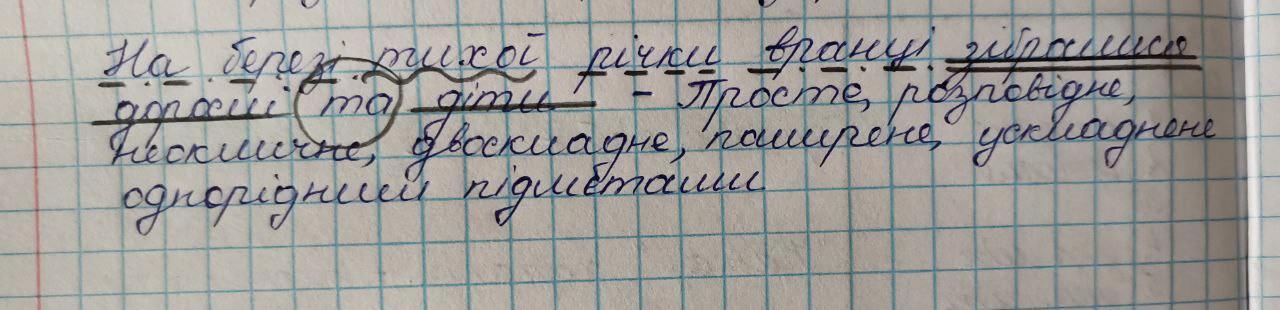 На березі тихої річки вранці зібралися
дорослі та діти - Просте, розповідне,
неокличне, двоскладне, поширене, ускладнене
однорідними підметами